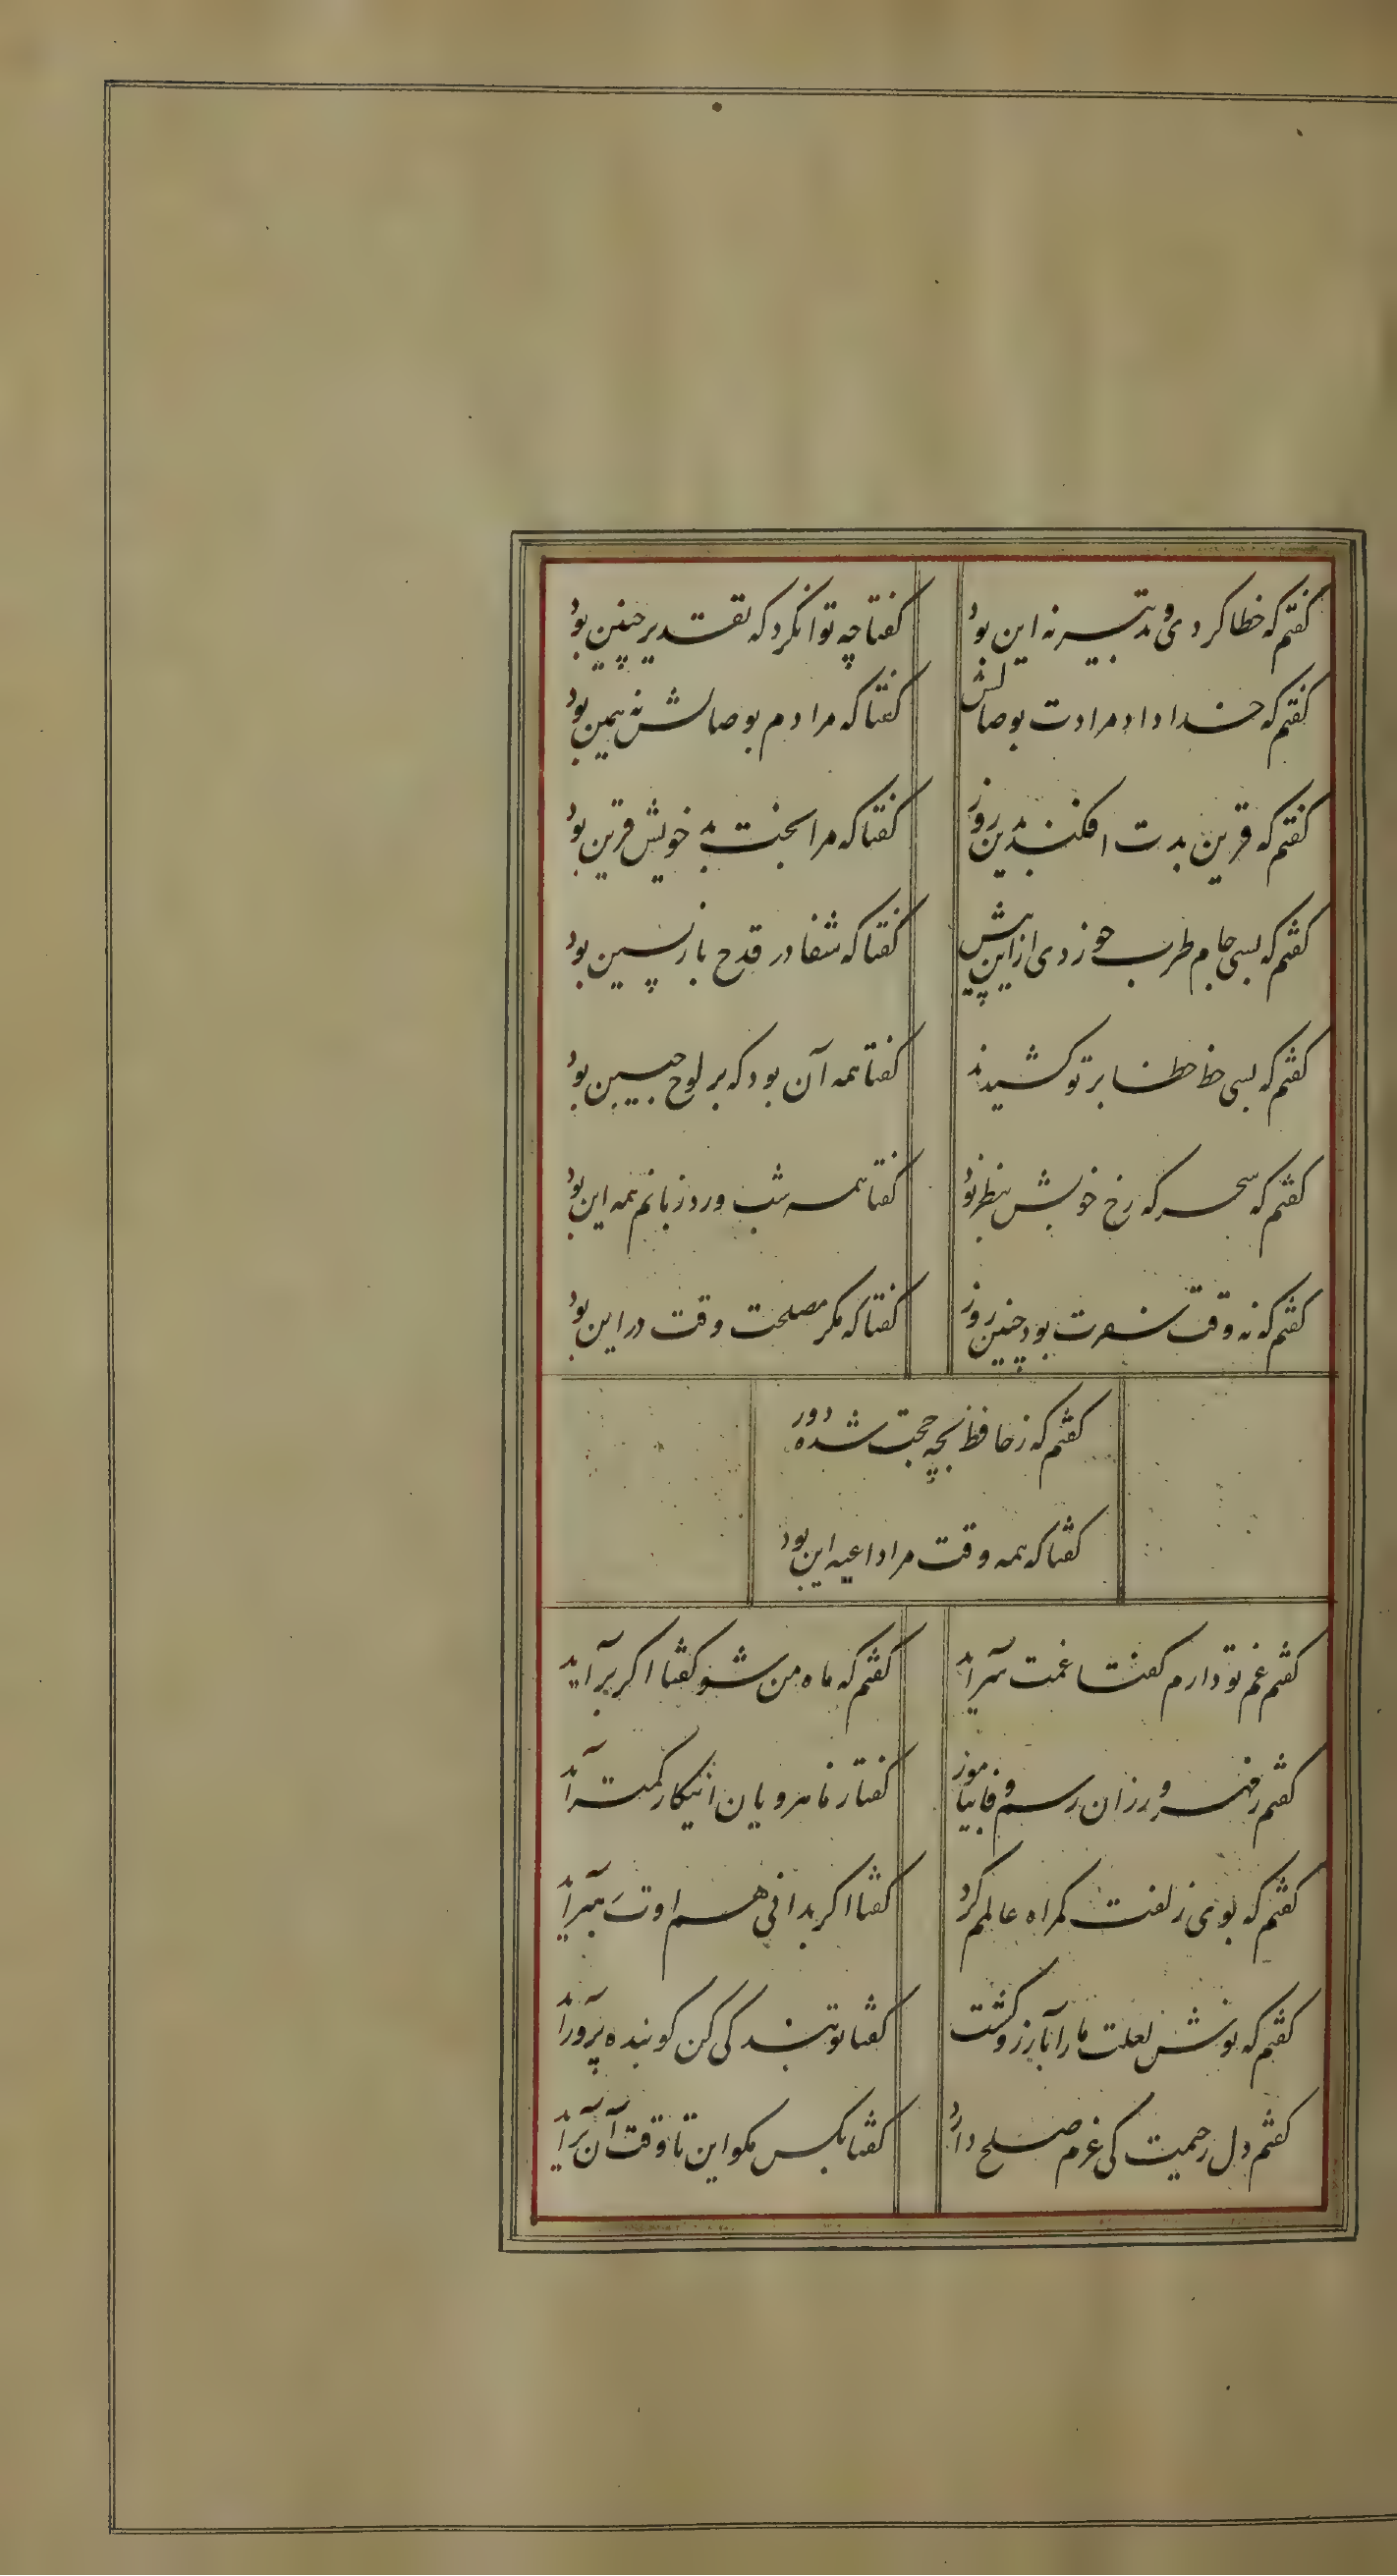 گفتم که خطا کردی و تدبیر نه این بود
گفتا چه توان کرد که تقدیر چنین بود
گفتم که خدا داد مرادت بوصالش
گفتا که مرادم بوصالش نه همین بود
گفتم که قرین بدت افکند بدین روز
گفتا که مرا بخت بد خویش قرین بود
گفتم که بسی جام طرب خوردی ازین پیش
گفتا که شفا در قدح بازپسین بود
گفتم که بسی خط خطا بر تو کشیدند
گفتا همه آن بود که بر لوح جبین بود
گفتم که سحر که رخ خوبش بنظر بود
گفتا همه شب ورد زبانم همه این بود
گفتم که نه وقت سفرت بود چنین روز
گفتا که مکر مصلحت وقت در این بود
گفتم که ز حافظ بچه حجت شده دور
گفتا که همه وقت مرا داعیه این بود
گفتم غم تو دارم گفتا غمت سرآید
گفتم که ماه من شو گفتا اکر برآید
گفتم ز مهرورزان رسم وفا بیاموز
گفتا ز ماهرویان اینکار کمتر آید
گفتم که بوی زلفت کمراه عالمم کرد
گفتا اکر بدانی هم اوت رهبر آید
گفتم که نوش لعلت ما را بآرزو کشت
گفتا تو بندگی کن کو بنده پرور آید
گفتم دل رحیمت کی عزم صلح دارد
گفتا بکس مکو این تا وقت آن برآید